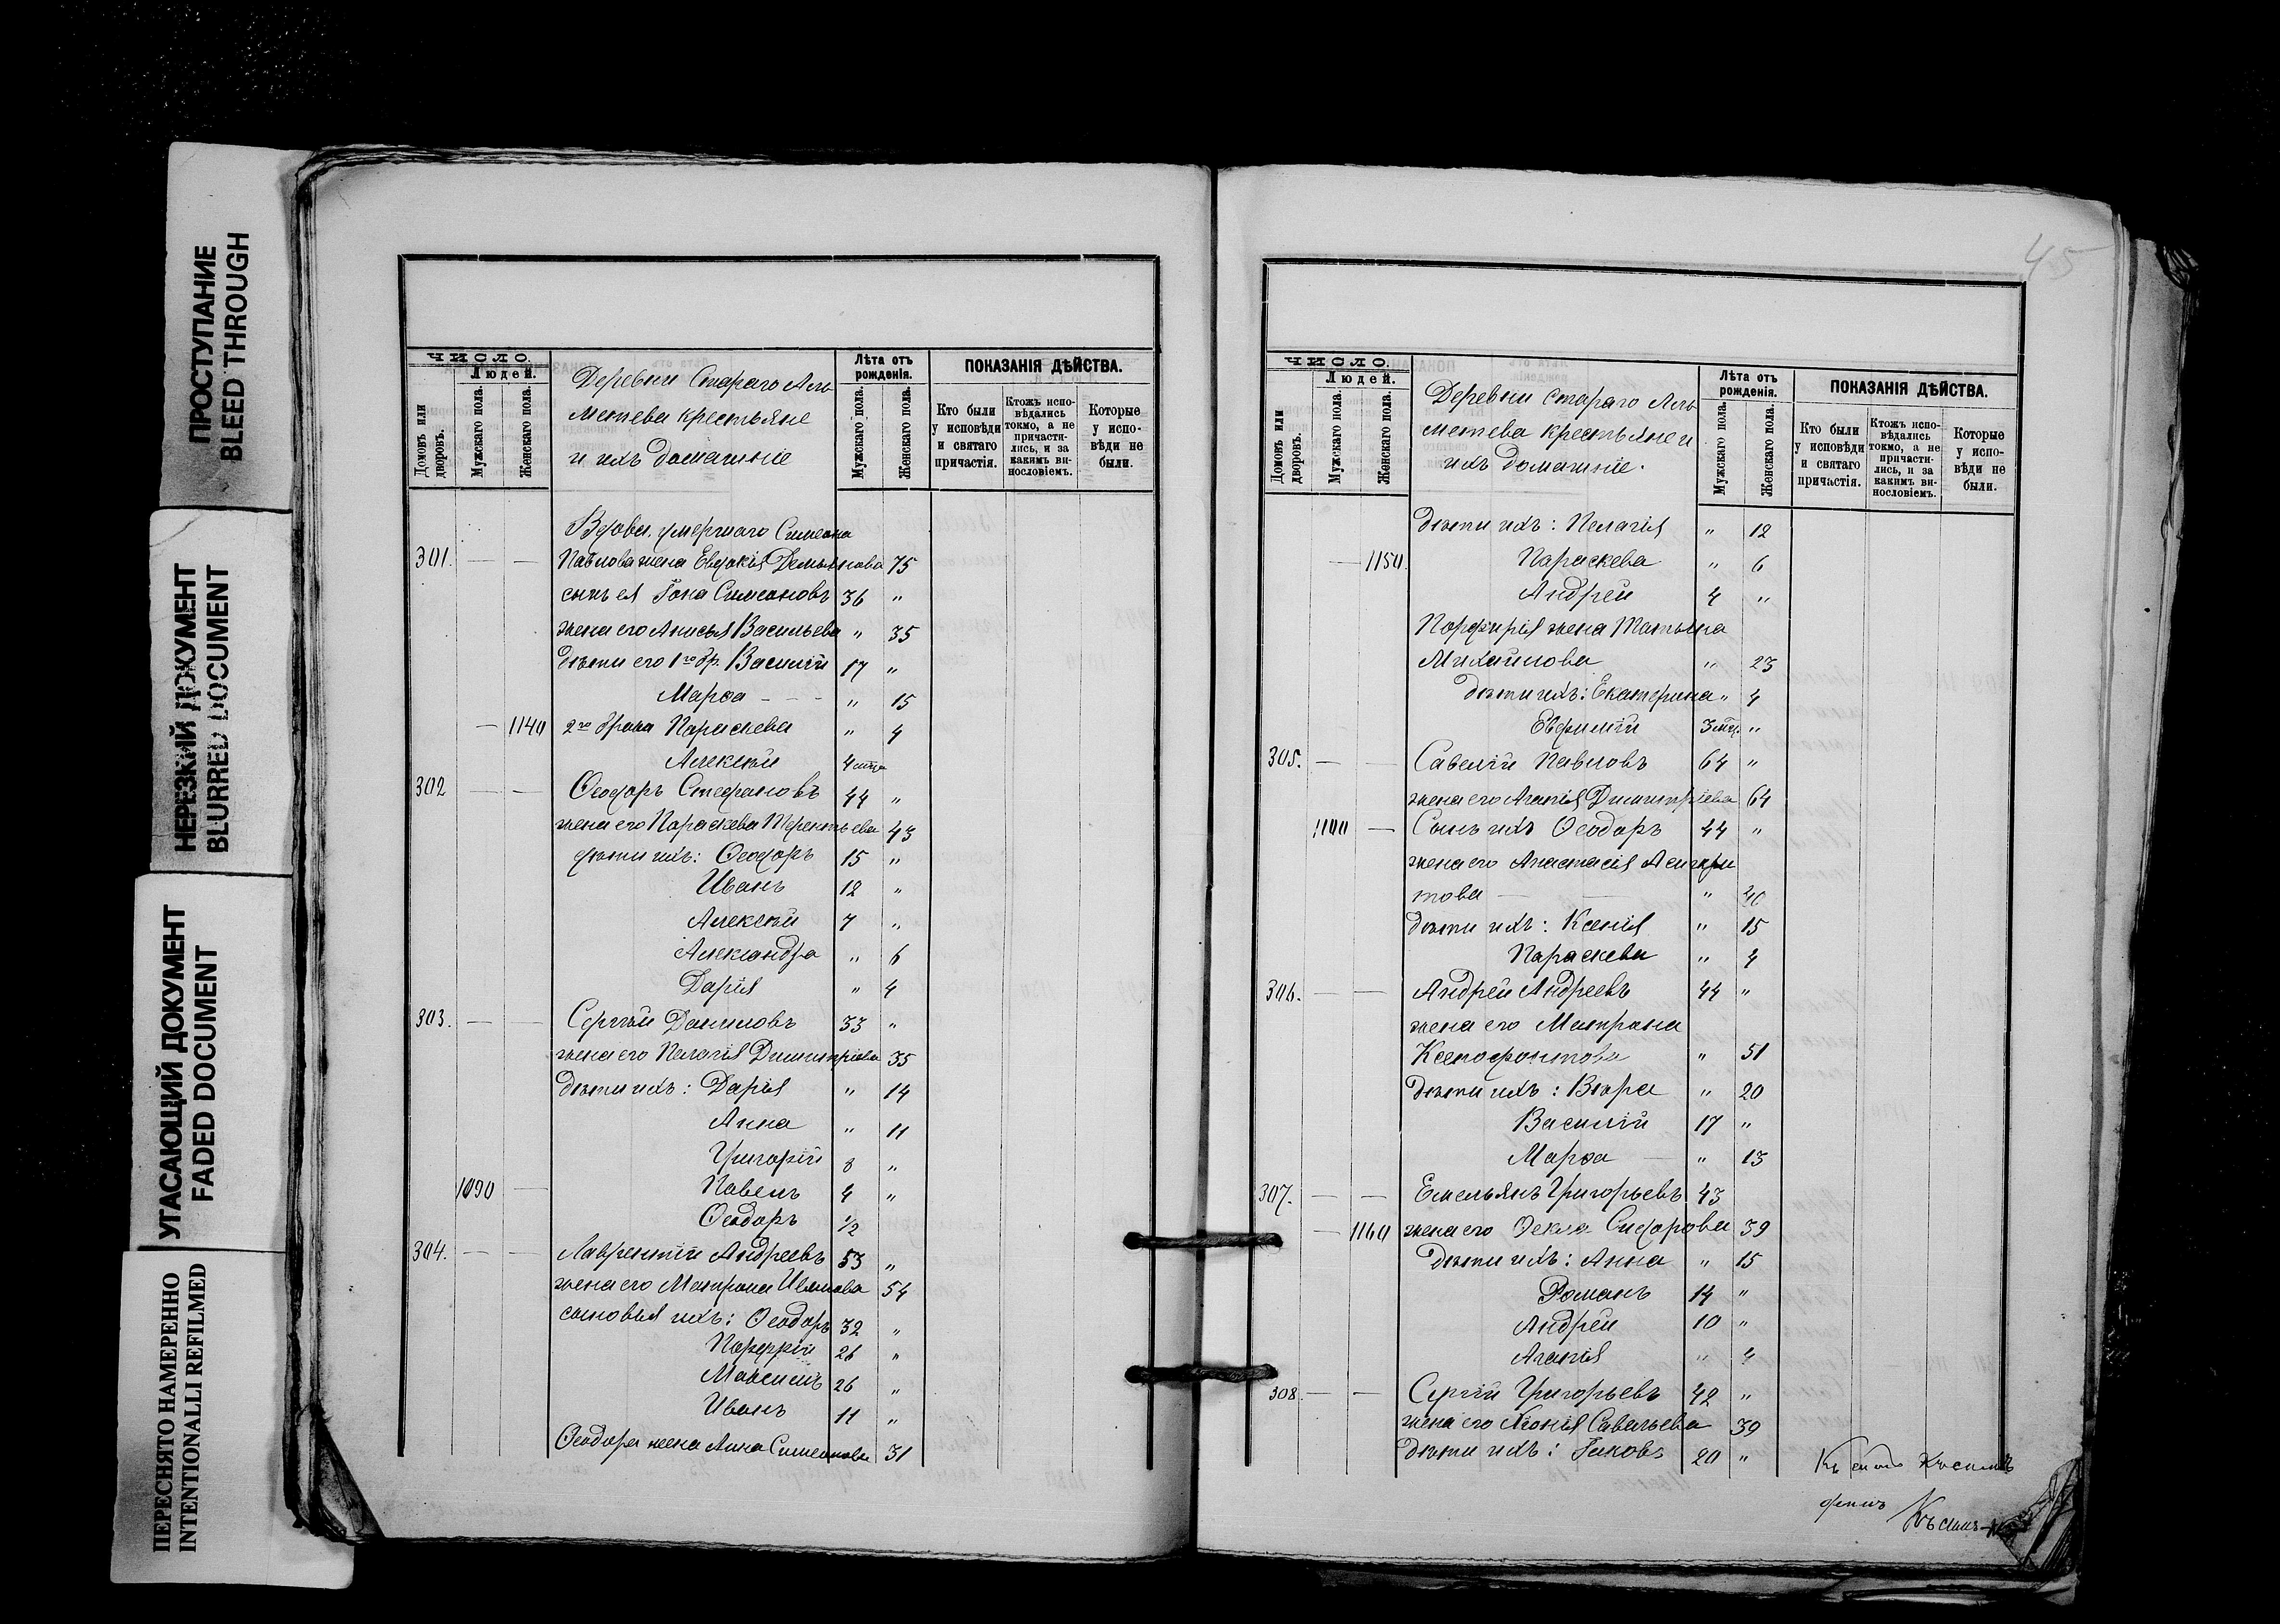 ПРОСТУПАНИЕ
BLEED THROUGH
НЕРЕЗКИЙ ДОКУМЕНТ
BLURRED DOCUMENT
УГАСАЮЩИЙ ДОКУМЕНТ
FADED DOCUMENT
ПЕРЕСНЯТО НАМЕРЕННО
INTENTIONALLI REFILMED
ЧИСЛО.
Людей.
Домовъ или дворовъ.
Мужскаго пола.
Женскаго пола.
Деревни Стараго Аль
метева крестьяне
и ихъ домашніе
Лѣта отъ рожденія.
Мужскаго пола.
Женскаго пола.
ПОКАЗАНІЯ ДѢЙСТВА.
Кто были у исповѣди и святаго причастія.
Ктожъ испо-вѣдались токмо, а не причасти-лись, и за какимъ ви-нословіемъ.
Которые у испо-вѣди не были.
Вдова, умершаго Симеона
301. — — Павлова жена Евдокія Демьянова 75
сынъ ея Іона Симеоновъ 36 "
жена его Анисья Васильева " 35
дѣти его 1го бр. Василій 17 "
Марѳа - - - " 15
— 1140 2го брака Параскева " 4
Алексѣй 4
302 — — Ѳеодоръ Стефановъ 44 "
жена его Параскева Терентьева 43
дѣти ихъ: Ѳеодоръ 15 "
Иванъ 12 "
Алексѣй 7 "
Александра " 6
Дарія " 4
303. — — Сергѣй Даниловъ 33 "
жена его Пелагія Димитріева 35
дѣти ихъ: Дарія " 14
Анна " 11
Григорій 8 "
1090 — Павелъ 4 "
Ѳеодоръ 1/2
304. — — Лаврентій Андреевъ 53 "
жена его Матрона Иванова 54
сыновья ихъ: Ѳеодоръ 32 "
Порфирій 26 "
Максимъ 26 "
Иванъ 11 "
Ѳеодора жена Анна Симеонова 31
45
ЧИСЛО.
Людей.
Домовъ или дворовъ.
Мужскаго пола.
Женскаго пола.
Деревни стараго Аль
метева крестьяне и
ихъ домашніе.
Лѣта отъ рожденія.
Мужскаго пола.
Женскаго пола.
ПОКАЗАНІЯ ДѢЙСТВА.
Кто были у исповѣди и святаго причастія.
Ктожъ испо-вѣдались токмо, а не причасти-лись, и за какимъ ви-нословіемъ.
Которые у испо-вѣди не были.
дѣти ихъ: Пелагія " 12
— 1150. Параскева " 6
Андрей 4 "
Порфирія жена Татьяна
Михайлова " 23
дѣти ихъ: Екатерина " 4
Евфимій 3 "
305. — — Савелій Павловъ 64 "
жена его Агапія Димитріева 64
1100 — Сынъ ихъ Ѳеодоръ 44 "
жена его Анастасія Асигкри
това — " 40
дѣти ихъ: Ксенія " 15
Параскева " 4
306. — — Андрей Андреевъ 44 "
жена его Матрона
Ксенофонтова " 51
дѣти ихъ: Вѣра " 20
Василій 17 "
Марѳа — " 13
307. — — Емельянъ Григорьевъ 43
— 1160 жена его Ѳекла Сидорова 39
дѣти ихъ: Анна " 15
Романъ 14 "
Андрей 10 "
Агапія " 4
308 — — Сергій Григорьевъ 42 "
жена его Хіонія Савельева 39
дѣти ихъ: Іаковъ 20 "